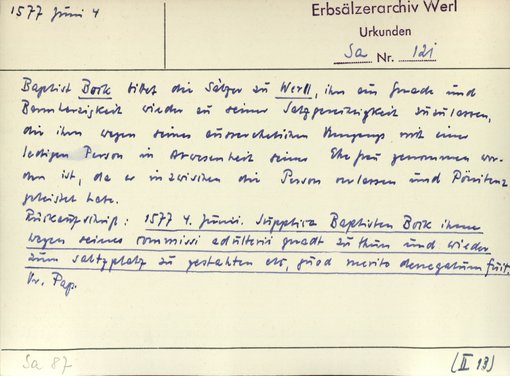 1577 Juni 4
Erbsälzerarchiv Werl
Urkunden
Sa Nr. 121
Baptist Bock bittet die Sälzer zu Werll, ihn aus Gnade und
Barmherzigkeit wieder zu seiner Salzgerechtigkeit zuzulassen,
die ihm wegen seines ausserehelichen Umgangs mit einer
ledigen Person in Abwesenheit seiner Ehefrau genommen wor-
den ist, da er inzwischen die Person verlassen und Pönitenz
geleistet habe.
Rückaufschrift: 1577 4. Junii. Supplica Baptisten Bock ihme
wegen seines commissi adulterii gnadt zu thun und wieder
zum saltzplatz zu gestahten etc, quod merito denegatum fuit.
Or. Pap.
Sa 87
(II 13)